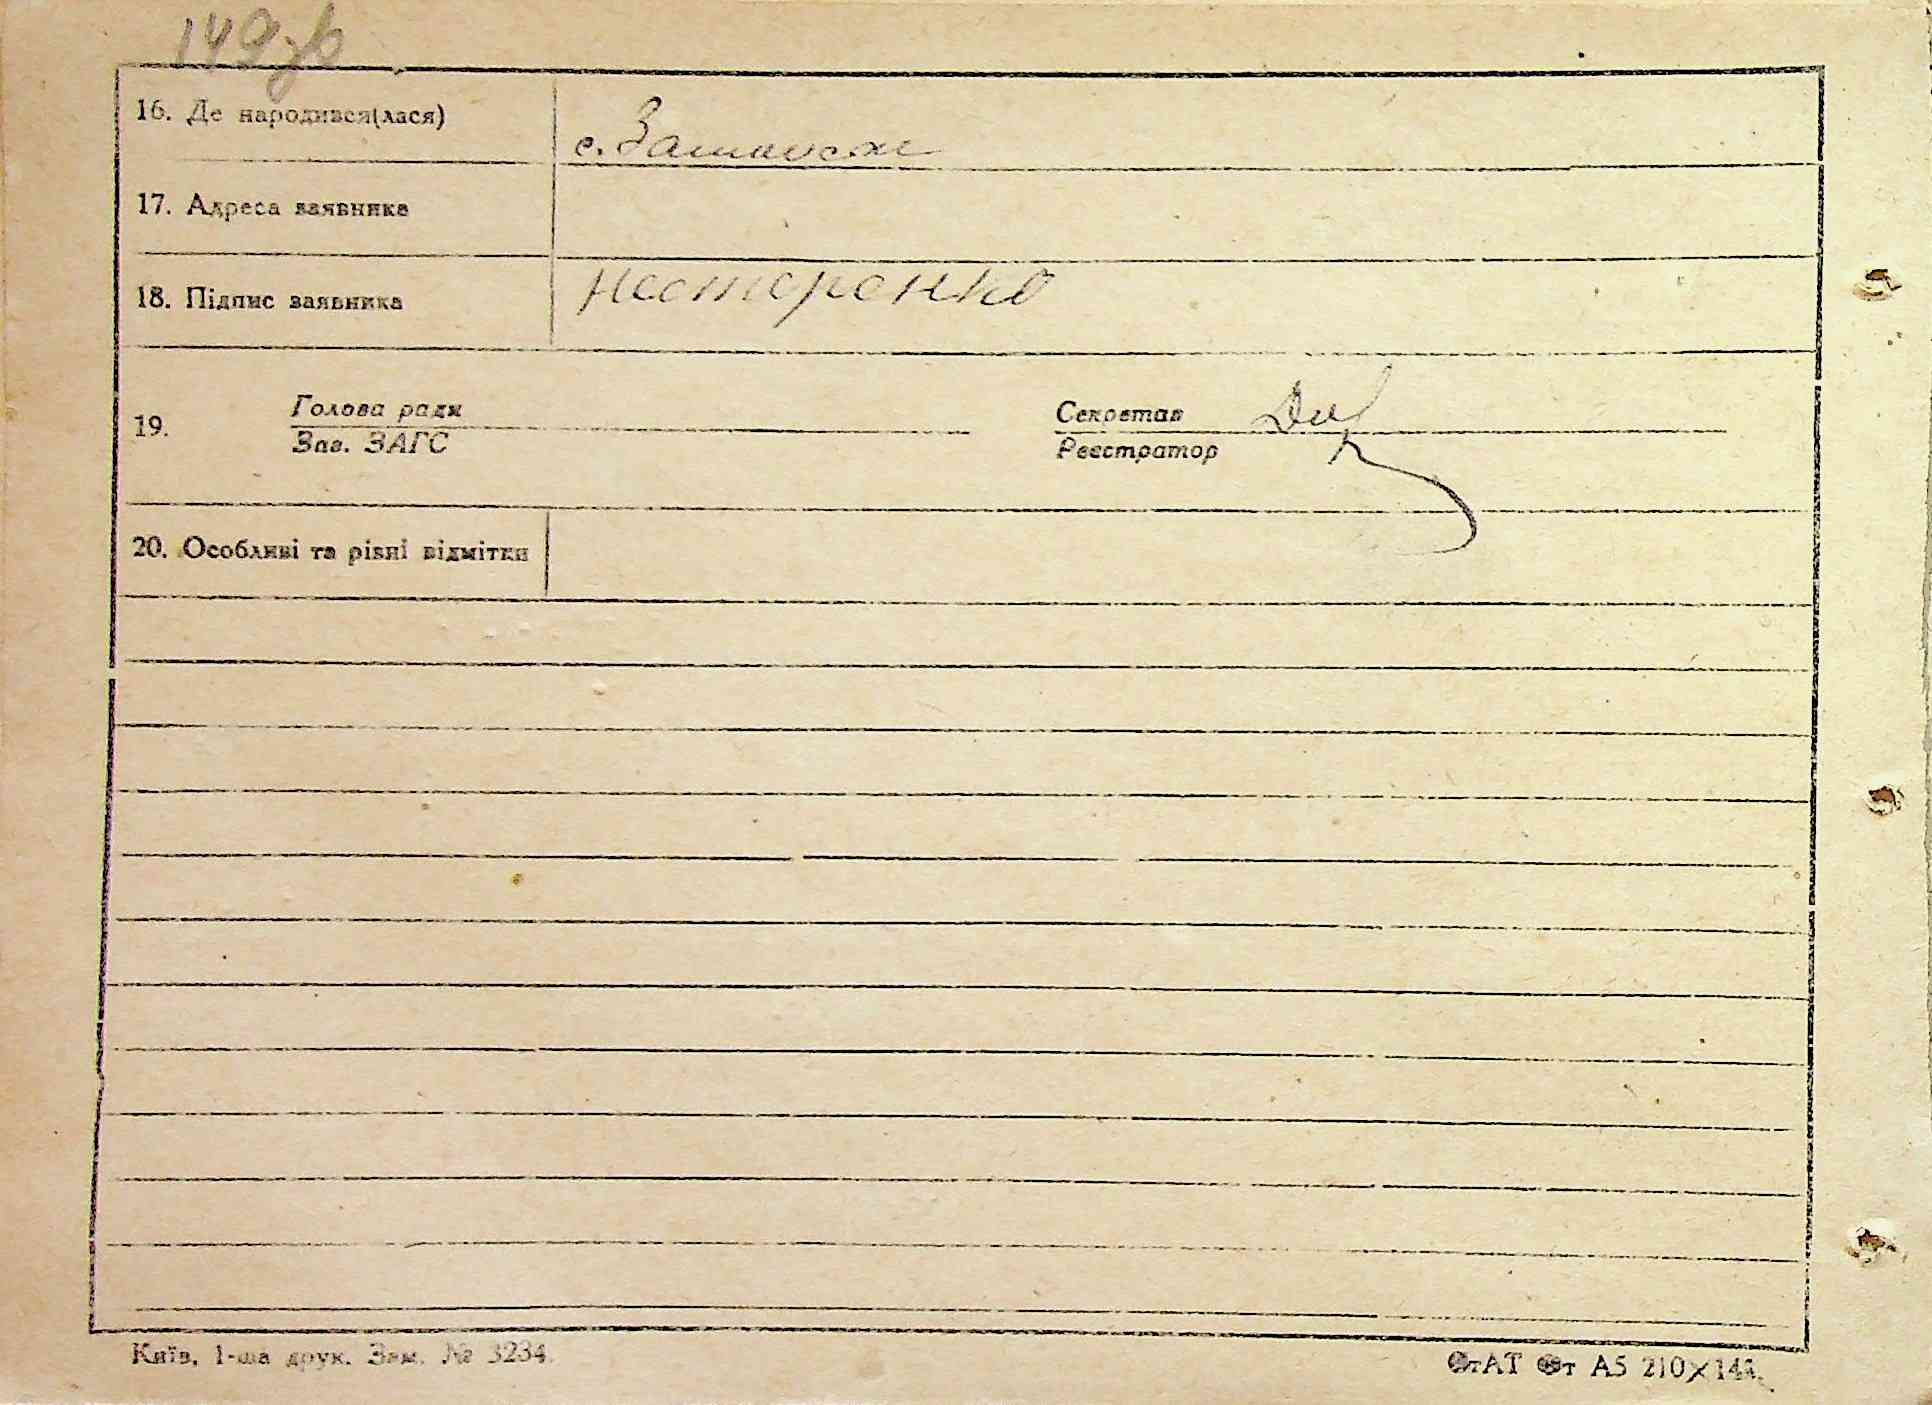 149зв
16. Де народився(лася)
с.
17. Адреса заявника
18. Підпис заявника
Нестеренко
19.
Голова ради
Зав. ЗАГС
Секретар
Реєстратор
20. Особливі та різні відмітки
Київ, 1-ша друк. Зам. № 3234.
СтАТ Ст А5 210×148.